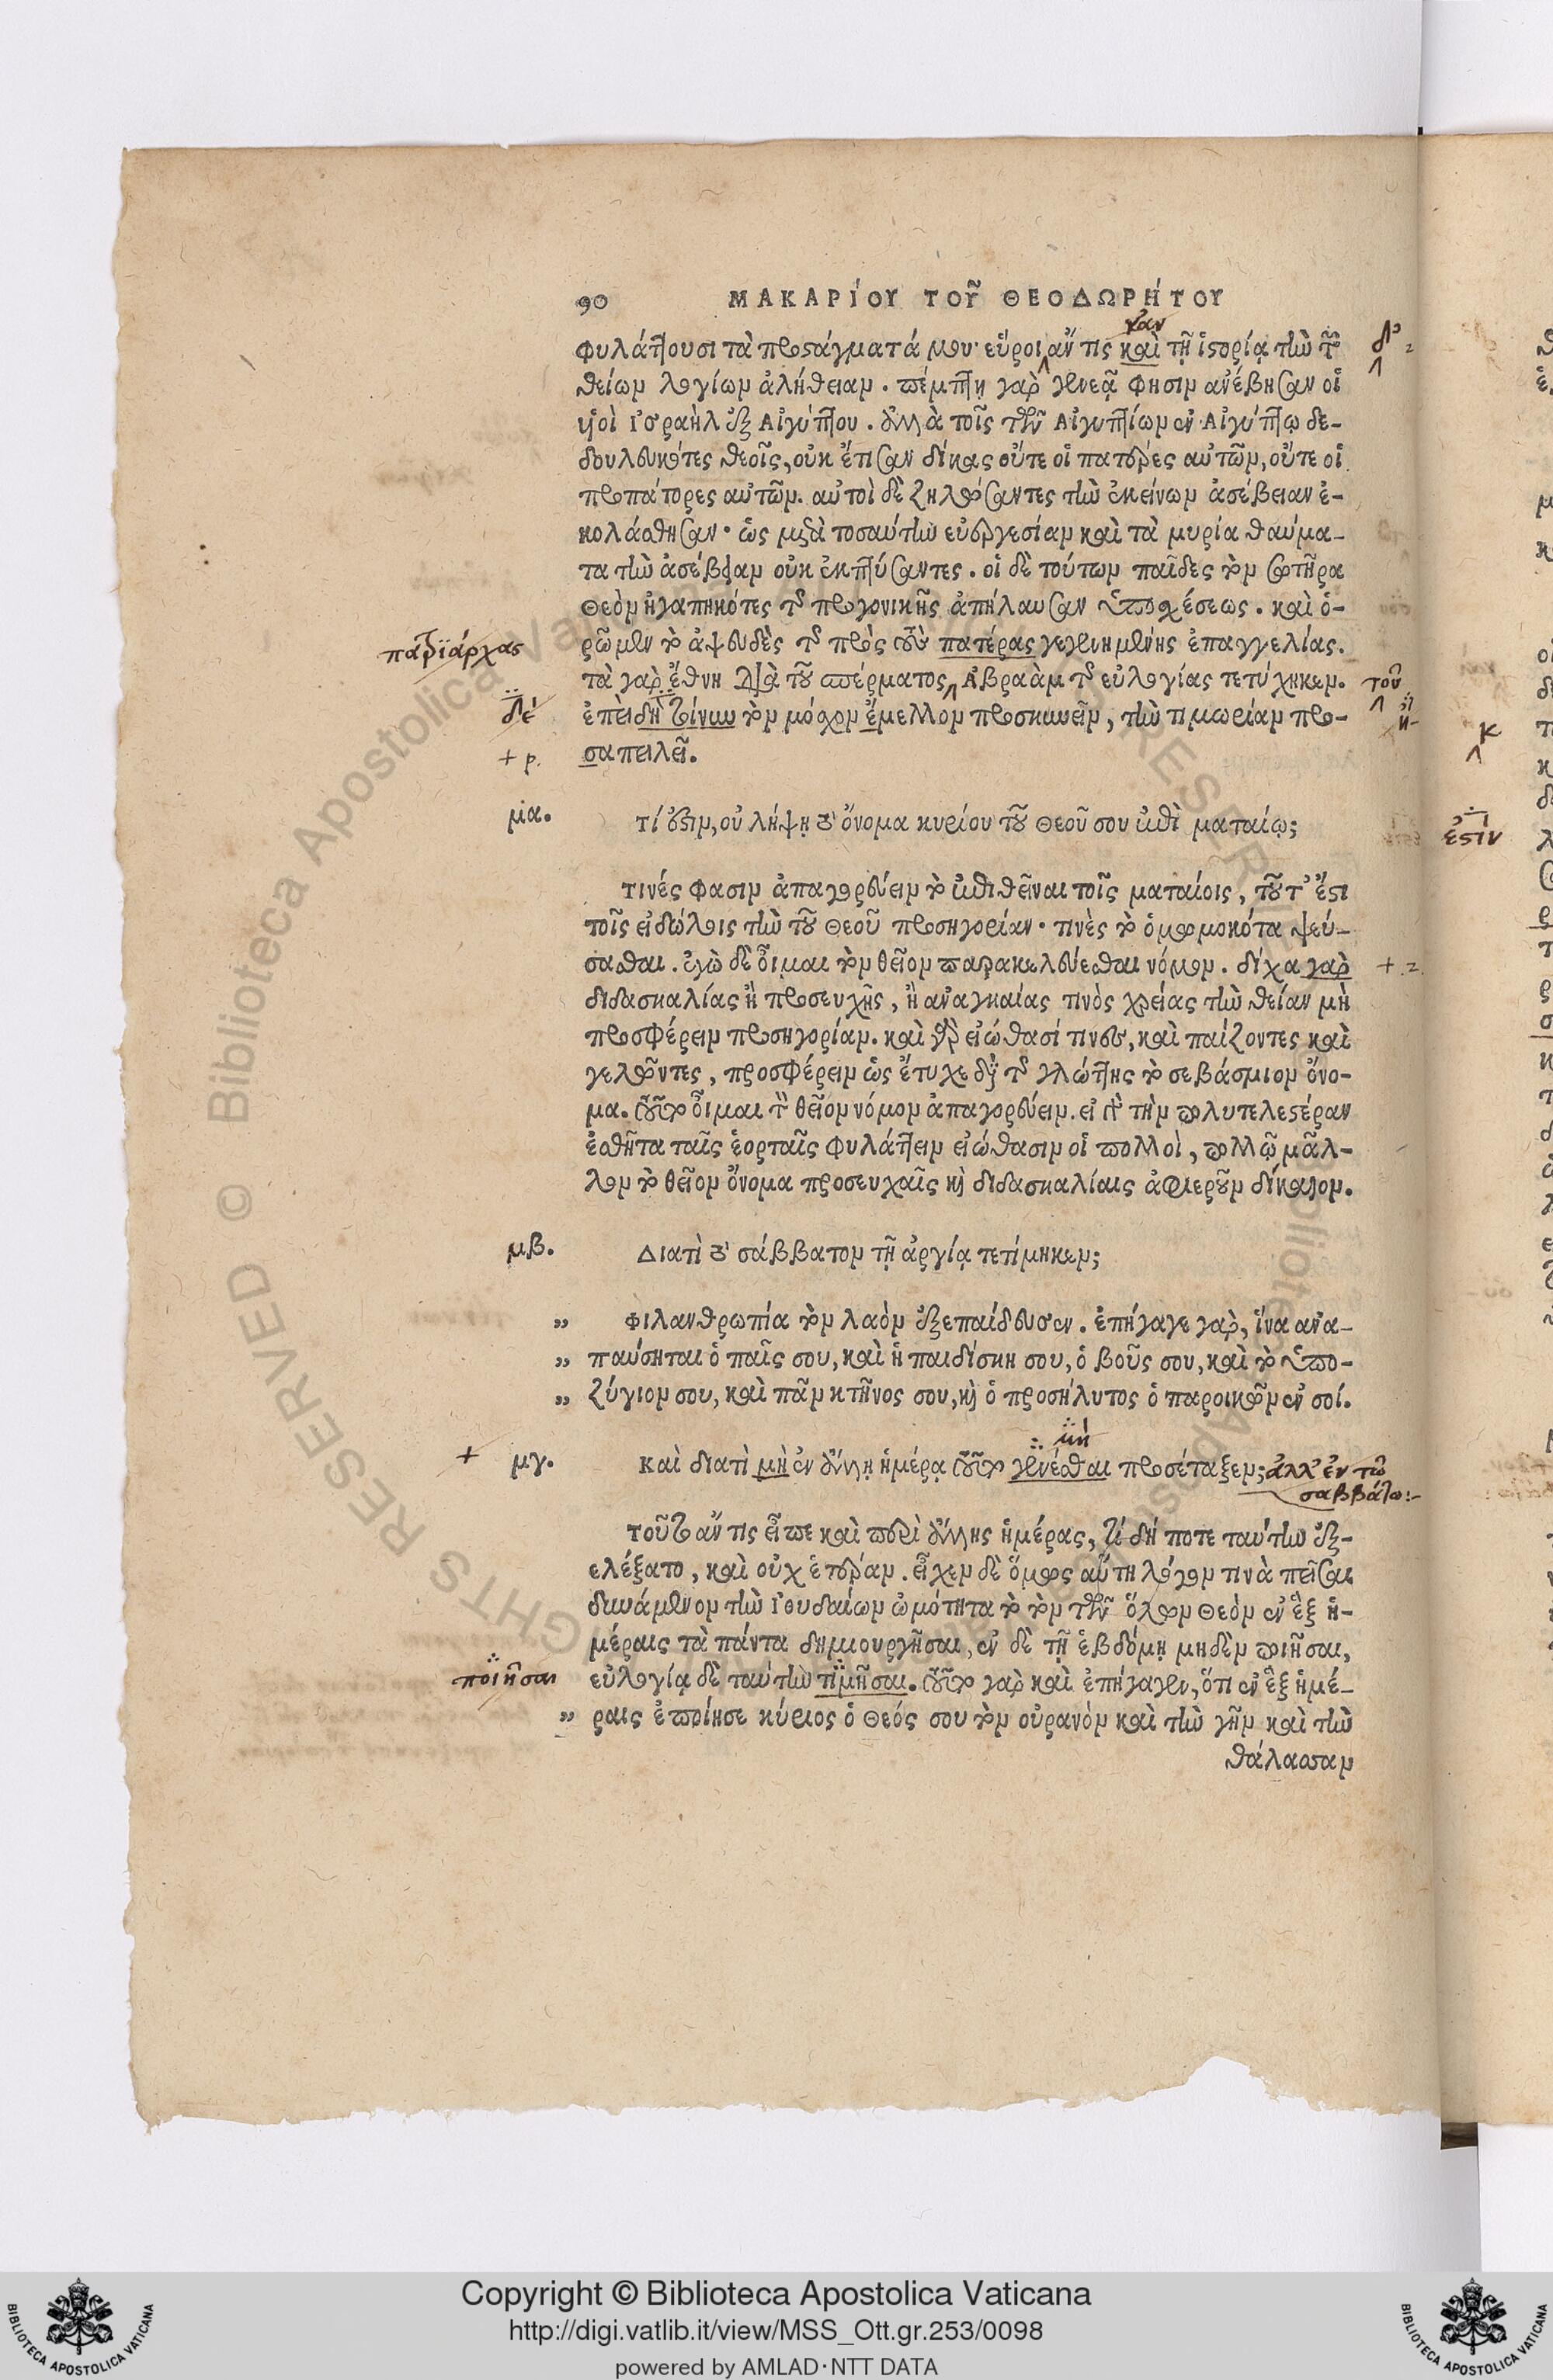 90 ΜΑΚΑΡΊΟΥ ΤΟῦ ΘΕΟΔΩΡΉΤΟΥ
κἀν
φυλάττουσι τὰ προστάγματά μου· εὕροι ἄν τις καὶ τῇ ἱστορίᾳ τὴν τῶν δ'
θείων λογίων ἀλήθειαν. πέμπτῃ γὰρ γενεᾷ φησιν ἀνέβησαν οἱ
υἱοὶ ἰσραὴλ ἐξ Αἰγύπτου. ἀλλὰ τοῖς τῶν Αἰγυπτίων ἐν Αἰγύπτῳ δε-
δουλευκότες θεοῖς, οὐκ ἔτισαν δίκας οὔτε οἱ πατέρες αὐτῶν, οὔτε οἱ
προπάτορες αὐτῶν. αὐτοὶ δὲ ζηλώσαντες τὴν ἐκείνων ἀσέβειαν ἐ-
κολάσθησαν· ὡς μετὰ τοσαύτην εὐεργεσίαν καὶ τὰ μυρία θαύμα-
τα τὴν ἀσέβειαν οὐκ ἐκπτύσαντες. οἱ δὲ τούτων παῖδες τὸν σωτῆρα
Θεὸν ἠγαπηκότες τῆς προγονικῆς ἀπήλαυσαν ὑποσχέσεως. καὶ ὁ-
πατριάρχας ρῶμεν τὸ ἀψευδὲς τῆς πρὸς τοὺς πατέρας γεγενημένης ἐπαγγελίας.
τὰ γὰρ ἔθνη διὰ τοῦ σπέρματος Ἀβραὰμ τῆς εὐλογίας τετύχηκεν. τοῦ
δέ ἐπειδὴ τοίνυν τὸν μόσχον ἔμελλον προσκυνεῖν, τὴν τιμωρίαν προ- ἤ-
+ p. σαπειλεῖ.
μα. Τί ἐστιν, οὐ λήψῃ τὸ ὄνομα κυρίου τοῦ Θεοῦ σου ἐπὶ ματαίῳ;
Τινές φασιν ἀπαγορεύειν τὸ ἐπιθεῖναι τοῖς ματαίοις, τοῦτ' ἔστι
τοῖς εἰδώλοις τὴν τοῦ Θεοῦ προσηγορίαν· τινὲς τὸ ὀμωμοκότα ψεύ-
σασθαι. ἐγὼ δὲ οἶμαι τὸν θεῖον παρακελεύεσθαι νόμον. δίχα γὰρ + 2.
διδασκαλίας ἢ προσευχῆς, ἢ ἀναγκαίας τινὸς χρείας τὴν θείαν μὴ
προσφέρειν προσηγορίαν. καὶ γὰρ εἰώθασί τινες, καὶ παίζοντες καὶ
γελῶντες, προσφέρειν ὡς ἔτυχε διὰ τῆς γλώττης τὸ σεβάσμιον ὄνο-
μα. τοῦτο οἶμαι τὸν θεῖον νόμον ἀπαγορεύειν. εἰ γὰρ τὴν πολυτελεστέραν
ἐσθῆτα ταῖς ἑορταῖς φυλάττειν εἰώθασιν οἱ πολλοὶ, πολλῷ μᾶλ-
λον τὸ θεῖον ὄνομα προσευχαῖς καὶ διδασκαλίαις ἀφιεροῦν δίκαιον.
μβ. Διατὶ τὸ σάββατον τῇ ἀργίᾳ τετίμηκεν;
„ Φιλανθρωπία τὸν λαὸν ἐξεπαίδευσεν. ἐπήγαγε γὰρ, ἵνα ἀνα-
„ παύσηται ὁ παῖς σου, καὶ ἡ παιδίσκη σου, ὁ βοῦς σου, καὶ τὸ ὑπο-
„ ζύγιον σου, καὶ πᾶν κτῆνος σου, καὶ ὁ προσήλυτος ὁ παροικῶν ἐν σοί.
μὴ
+ μγ. Καὶ διατὶ μὴ ἐν ἄλλῃ ἡμέρᾳ τοῦτο γενέσθαι προσέταξεν; ἀλλ' ἐν τῶ
σαββάτω:-
Τοῦτο ἄν τις εἶπε καὶ περὶ ἄλλης ἡμέρας, τί δή ποτε ταύτην ἐξ-
ελέξατο, καὶ οὐχ ἑτέραν. εἶχεν δὲ ὅμως αὕτη λόγον τινὰ πεῖσαι
δυνάμενον τὴν Ἰουδαίων ὠμότητα τὸ τὸν τῶν ὅλων Θεὸν ἐν ἓξ ἡ-
μέραις τὰ πάντα δημιουργῆσαι, ἐν δὲ τῇ ἑβδόμῃ μηδὲν ποιῆσαι,
ποιῆσαι εὐλογίᾳ δὲ ταύτην τιμῆσαι. τοῦτο γὰρ καὶ ἐπήγαγεν, ὅτι ἐν ἓξ ἡμέ-
„ ραις ἐποίησε κύριος ὁ Θεός σου τὸν οὐρανὸν καὶ τὴν γῆν καὶ τὴν
θάλασσαν
κ
ἐστὶν
© Biblioteca Apostolica Vaticana ALL RIGHTS RESERVED
Copyright © Biblioteca Apostolica Vaticana
http://digi.vatlib.it/view/MSS_Ott.gr.253/0098
powered by AMLAD·NTT DATA
BIBLIOTECA APOSTOLICA VATICANA
BIBLIOTECA APOSTOLICA VATICANA